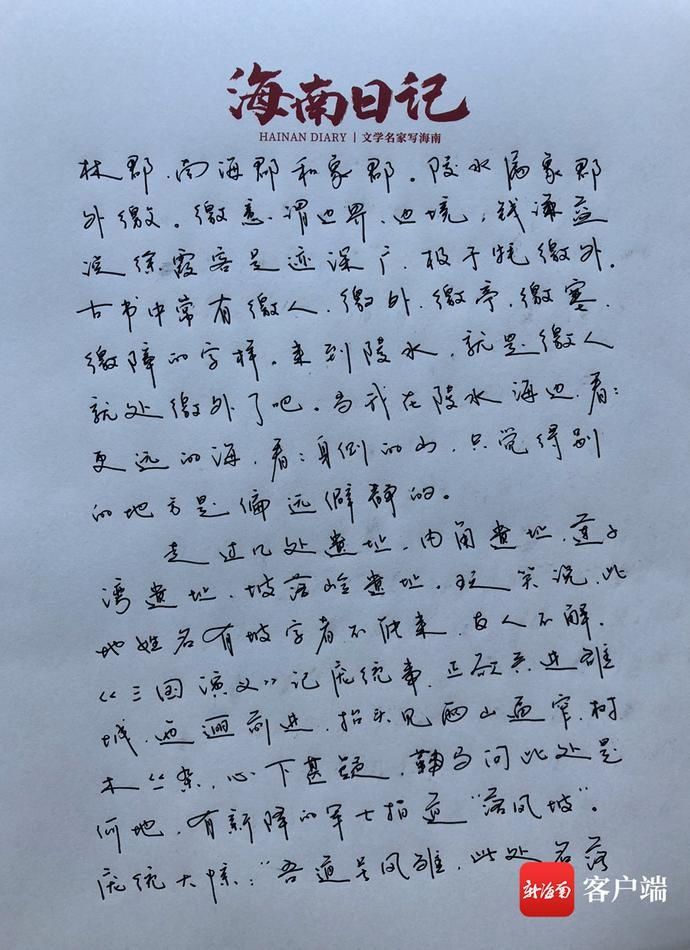 海南日记
HAINAN DIARY | 文学名家写海南
林郡、南海郡和象郡。陵水属象郡
外徼。徼意,谓边界、边境,钱谦益
说徐霞客足迹深广,极于牦徼外。
古书中常有徼人、徼外、徼亭、徼塞、
徼障的字样。来到陵水,就是徼人
就处徼外了吧。当我在陵水海边,看看
更远的海,看看身侧的山,只觉得别
的地方是偏远僻静的。
走过几处遗址,内角遗址,莲子
湾遗址,坡落岭遗址。玩笑说,此
地姓名有坡字者不能来,友人不解。
《三国演义》记庞统事,正欲兵进雒
城,迤逦前进,抬头见两山逼窄,树
木丛杂,心下甚疑,勒马问此处是
何地,有新降的军士指道“落凤坡”。
庞统大惊:“吾道号凤雏,此处名落
新海南 客户端